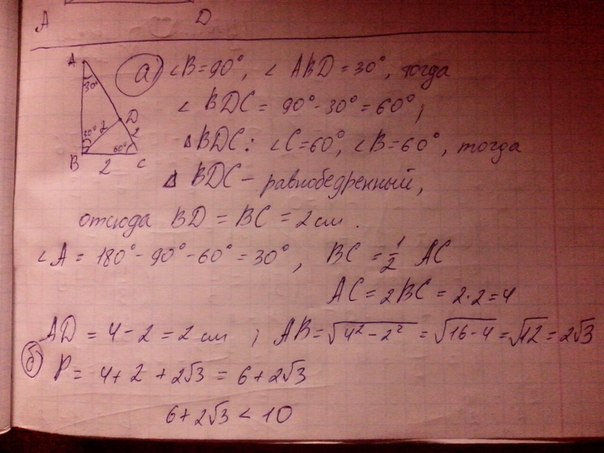 A D
а) ∠B=90°, ∠ABD=30°, тогда
∠BDC = 90°-30°=60°;
△BDC: ∠C=60°, ∠B=60°, тогда
△ BDC - равнобедренный,
откуда BD = BC = 2 см.
∠A = 180°-90°-60°=30°, BC = 1/2 AC
AC = 2BC = 2·2=4
AD = 4-2 = 2 см ; AB=√4²-2² = √16-4 = √12 = 2√3
б) P = 4+2+2√3 = 6+2√3
6+2√3 < 10
A
30°
30°
2
D
2
60°
B
2
C